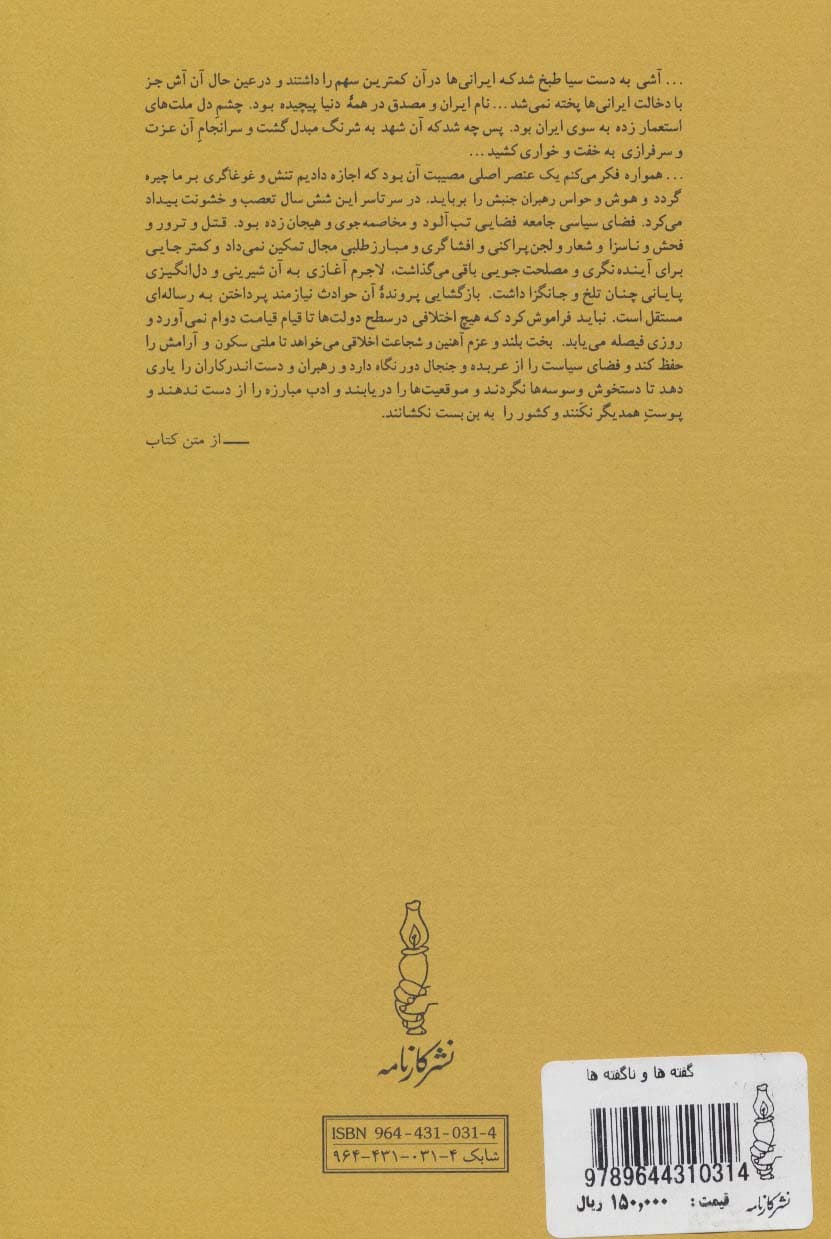 ... آشی به دست سیا طبخ شد که ایرانی‌ها در آن کمترین سهم را داشتند و در عین حال آن آش جز
با دخالت ایرانی‌ها پخته نمی‌شد ... نام ایران و مصدق در همهٔ دنیا پیچیده بود. چشمِ دل ملت‌های
استعمار زده به سوی ایران بود. پس چه شد که آن شهد به شرنگ مبدل گشت و سرانجامِ آن عزت
و سرفرازی به خفت و خواری کشید ...
... همواره فکر می‌کنم یک عنصر اصلی مصیبت آن بود که اجازه دادیم تنش و غوغاگری بر ما چیره
گردد و هوش و حواس رهبران جنبش را برباید. در سرتاسر این شش سال تعصب و خشونت بیداد
می‌کرد. فضای سیاسی جامعه فضایی تب‌آلود و مخاصمه‌جوی و هیجان زده بود. قتل و ترور و
فحش و ناسزا و شعار و لجن‌پراکنی و افشاگری و مبارزطلبی مجال تمکین نمی‌داد و کمتر جایی
برای آینده‌نگری و مصلحت‌جویی باقی می‌گذاشت، لاجرم آغازی به آن شیرینی و دل‌انگیزی
پایانی چنان تلخ و جانگزا داشت. بازگشایی پروندهٔ آن حوادث نیازمند پرداختن به رساله‌ای
مستقل است. نباید فراموش کرد که هیچ اختلافی در سطح دولت‌ها تا قیام قیامت دوام نمی‌آورد و
روزی فیصله می‌یابد. بخت بلند و عزم آهنین و شجاعت اخلاقی می‌خواهد تا ملتی سکون و آرامش را
حفظ کند و فضای سیاست را از عربده و جنجال دور نگاه دارد و رهبران و دست‌اندرکاران را یاری
دهد تا دستخوش وسوسه‌ها نگردند و موقعیت‌ها را دریابند و ادب مبارزه را از دست ندهند و
پوستِ همدیگر نکَنند و کشور را به بن‌بست نکشانند.
— از متن کتاب
نشر کارنامه
ISBN 964-431-031-4
شابک ۴-۰۳۱-۴۳۱-۹۶۴
گفته ها و ناگفته ها
9789644310314
قیمت: ۱۵۰,۰۰۰ ریال
نشر کارنامه